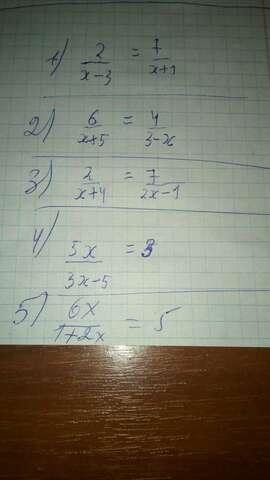 1) 2/(x-3) = 7/(x+1)
2) 6/(x+5) = 4/(3-x)
3) 2/(x+4) = 7/(2x-1)
4) 5x/(3x-5) = 3
5) 6x/(1+2x) = 5